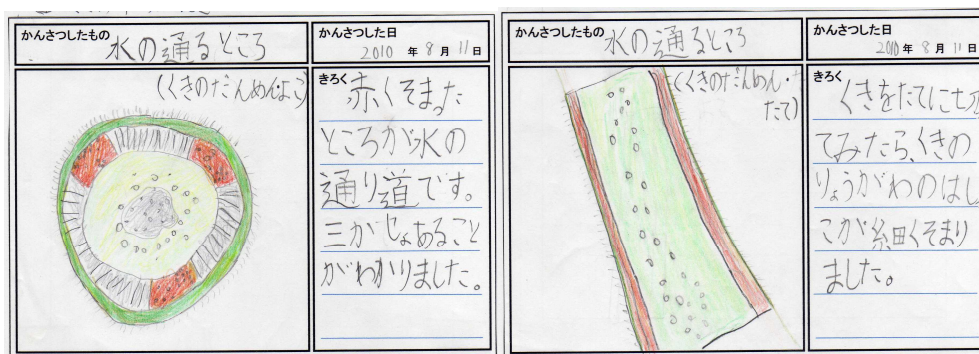 かんさつしたもの
水の通るところ
かんさつした日
2010 年 8 月 11 日
(くきのだんめん・よこ)
きろく
赤くそまった
ところが水の
通り道です。
三がしょあること
がわかりました。
かんさつしたもの
水の通るところ
かんさつした日
2010 年 8 月 11 日
(くきのだんめん・
たて)
きろく
くきをたてに
てみたら、くきの
りょうがわのはし
こが糸田くそまり
ました。